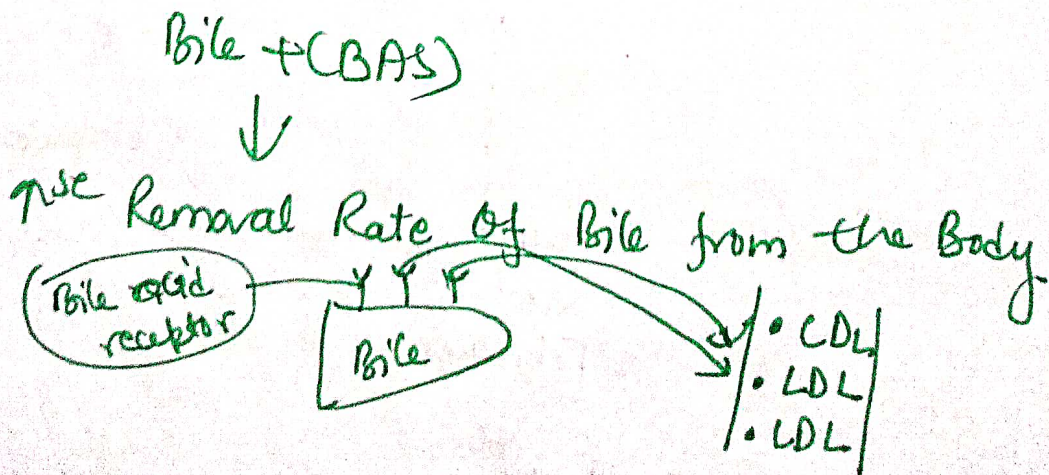 Bile + (BAS)
↓
↑se Removal Rate Of Bile from the Body.
Bile acid
receptor
Bile
• CDL
• LDL
• LDL